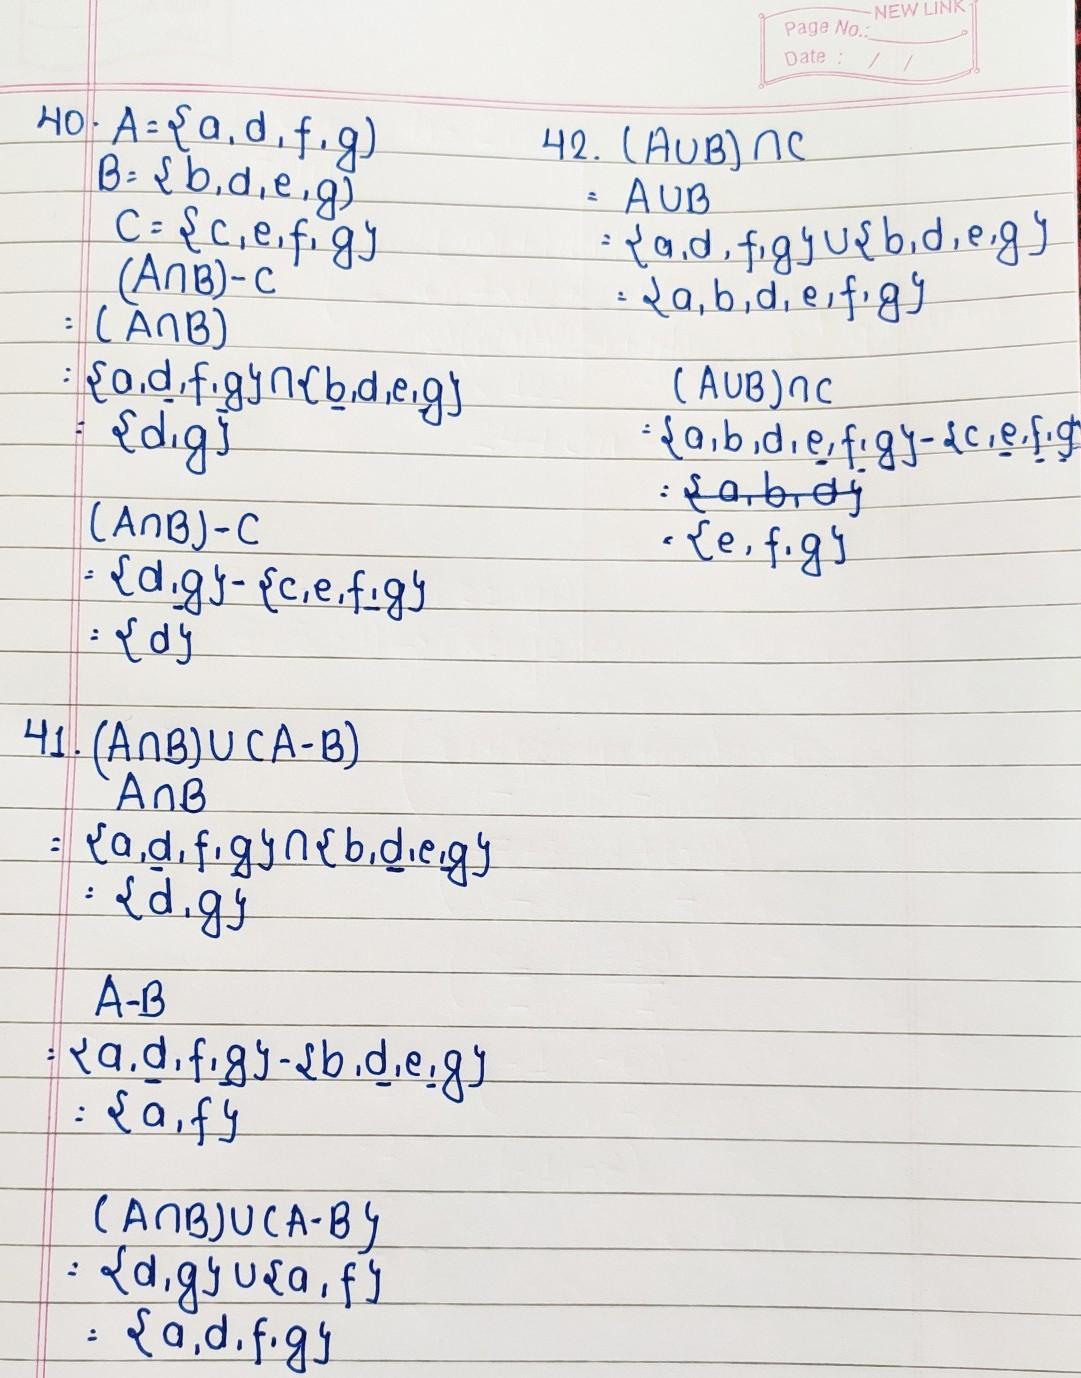 NEW LINK
Page No.:
Date : / /
40. A={a,d,f,g)
B={b,d,e,g)
C={c,e,f,g}
(A∩B)-C
=(A∩B)
={a,d,f,g}∩{b,d,e,g}
={d,g}
(A∩B)-C
={d,g}-{c,e,f,g}
={d}
41. (A∩B)∪(A-B)
A∩B
={a,d,f,g}∩{b,d,e,g}
={d,g}
A-B
={a,d,f,g}-{b,d,e,g}
={a,f}
(A∩B)∪(A-B}
={d,g}∪{a,f}
={a,d,f,g}
42. (A∪B)∩C
= A∪B
={a,d,f,g}∪{b,d,e,g}
={a,b,d,e,f,g}
(A∪B)∩C
={a,b,d,e,f,g}-{c,e,f,g
={a,b,d}
={e,f,g}